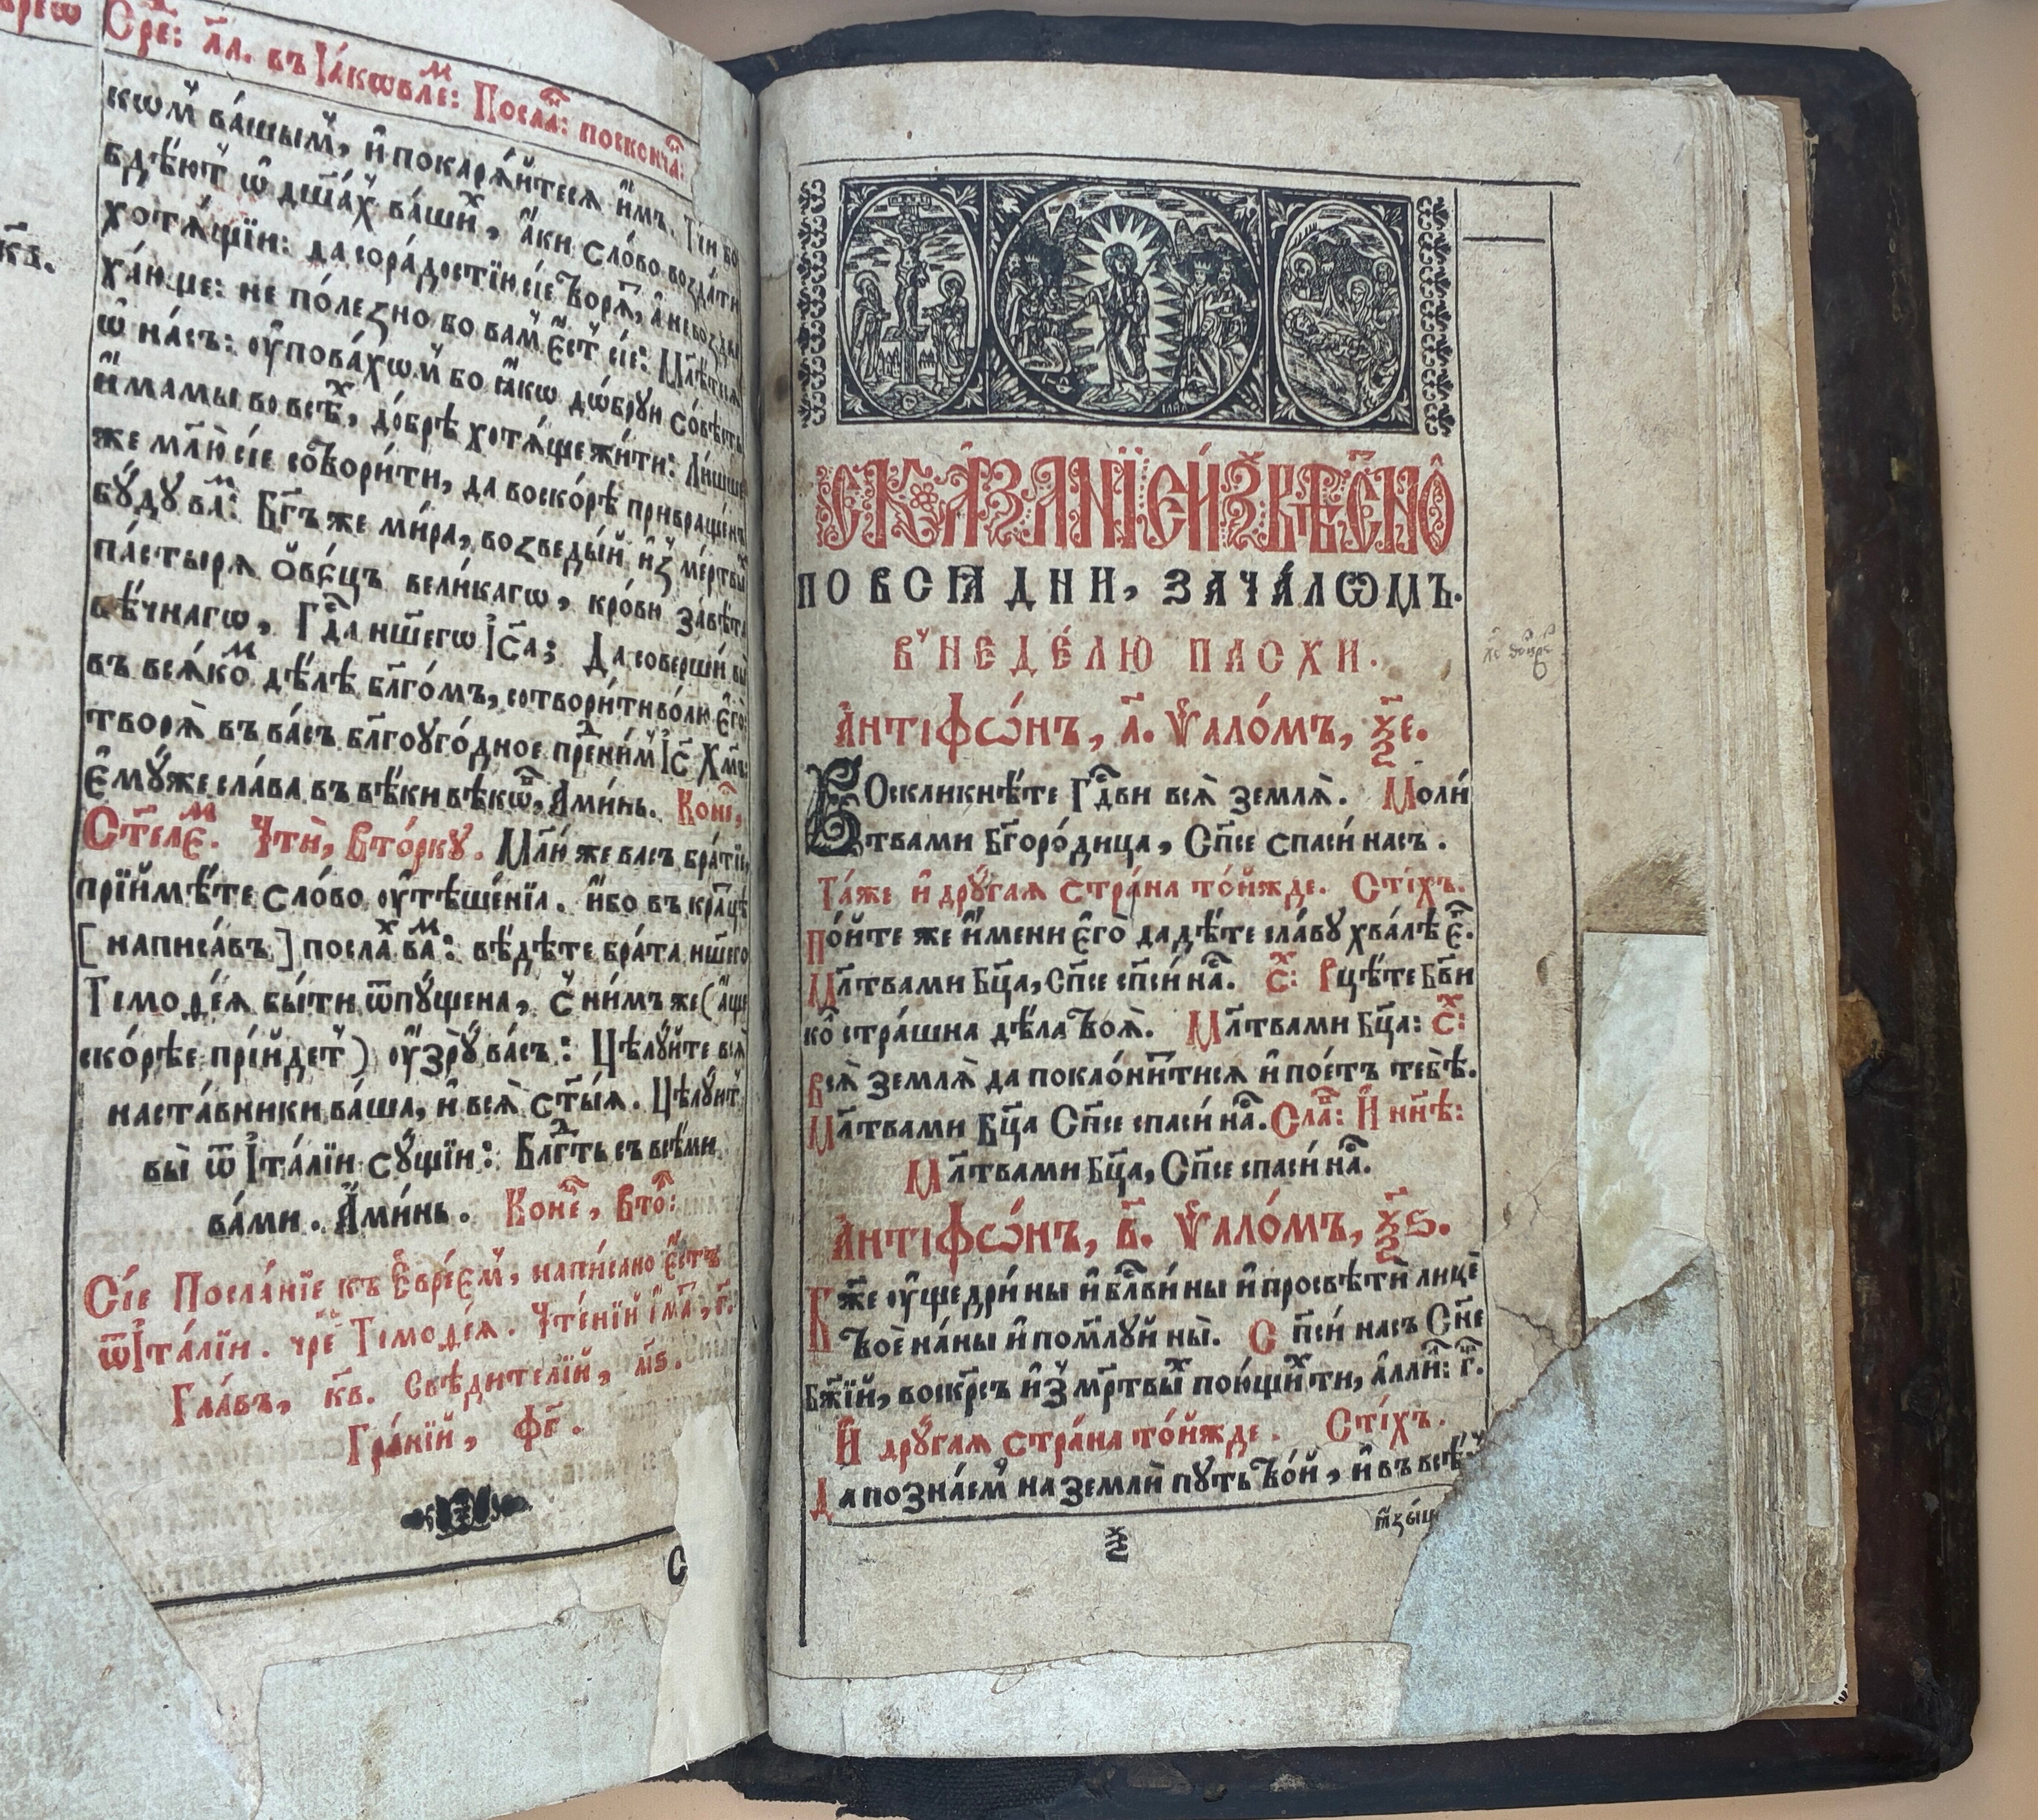 Сре: л҃д. въ Іа́кѡвле: Посла́: поскончѧ:
кѡм ва́шым, и҆ покарѧ́йтесѧ и҆́мъ. Тіи бо
бдѣ́ют ѡ҆ дш҃а́х ва́ших, а҆́ки сло́во возда́ти
хотѧ́щїи: да сора́достїю сїѐ творѧ́т, а҆ не возды
ха́юще: не поле́зно бо вам є҆́ст сїе: Мл҃ѣтесѧ
ѡ҆ на́съ: ᲂу҆пова́хѡм бо ꙗ҆́кѡ дѡ́брꙋи со́вѣсть
и҆́мамы во всѣ́х, до́брѣ хотѧ́ще жи́ти: Ли́шше
же млю̀ сїѐ сотвори́ти, да воско́рѣ привраще́нъ
бꙋ́дꙋ ва́м: Бг҃ъ же ми́ра, возведы́й и҆з ме́ртвых
па́стырѧ ѻ҆ве́цъ вели́кагѡ, кро́ви завѣ́та
вѣ́чнагѡ, Гд҇а нш҃егѡ І҆с҃а; Да соверши́т вы
въ всѧ́ком дѣ́лѣ бл҃го́мъ, сотвори́ти во́лю є҆гѡ̀
творѧ̀ въ ва́съ бл҃гоꙋго́дное пред ни́м І҆с҃ Хм҃ъ:
Є҆мꙋ́же сла́ва въ вѣ́ки вѣкѡ́в, А҆ми́нь. Коне́ц,
Ст҃ꙋ́ле́м. Чти̂, Вто́ркꙋ. Млю́ же васъ бра́тїе,
прїймѣ́те сло́во ᲂу҆тѣше́нїѧ. и҆́бо въ кра́тцѣ
[написа́въ] посла́х ва́м: вѣ́дѣте бра́та нш҃его
Тїмоѳе́ѧ бы́ти ѿпꙋ́щена, с ни́мъ же (а҆́ще
ско́рѣе прїи́дет) ᲂу҆зрю̀ ва́съ: Цѣлꙋ́йте всѧ̀
наста́вники ва́ша, и҆ всѧ̀ ст҃ы́ѧ. Цѣлꙋ́ют
вы̀ ѿ І҆та́лїи сꙋ́щїи: Бл҃гдть съ все́ми
ва́ми. А҆ми́нь. Коне́ц, Вто́р:
Сїѐ Посла́нїе къ Є҆вре́ем, напи́сано є҆́стъ
ѿ І҆та́лїи. чре́з Тїмоѳе́ѧ. Чте́нїй и҆́мат, г҃.
Гла́въ, к҃в. Свѣди́телїй, м҃ѕ.
Гра́нїй, ф҃г.
СКА́ЗАНЇЕ И҆ЗВѢ́СНО
ПО ВСѦ̀ ДНИ, ЗАЧА́ЛѠМЪ.
В НЕДЕ́ЛЮ ПАСХИ.
А҆нтіфѡ́нъ, а҃. Ѱало́мъ, ѯ҃е.
Воскликнѣ́те Гдв҇и всѧ̀ землѧ̀. Моли́
твами Бг҃оро́дица, Сп҃се спаси́ насъ.
Та́же и҆ дрꙋ́гаѧ страна то́йжде. Сті́хъ.
По́йте же и҆́мени є҆го̀ дадѣ́те сла́вꙋ хвалѣ̀ є҆г.
Мл҃твами Бц҃а, Сп҃се сп҃си́ на́с. Ст: Рцѣ́те Бг҃ви
ко́л стра́шна дѣ́ла твоѧ̀. Мл҃твами Бц҃а: Ст:
Всѧ̀ землѧ̀ да покло́нитсѧ и҆ пое́тъ тебѣ̀.
Мл҃твами Бц҃а Сп҃се спаси́ на́с. Сла́в: И҆ нн҃ѣ:
Мл҃твами Бц҃а, Сп҃се спаси́ на́с.
А҆нтіфѡ́нъ, в҃. Ѱало́мъ, ѯ҃ѕ.
Бж҃е ᲂу҆ще́дри ны и҆ блв҃и́ ны и҆ просвѣти̂ лице̂
твоѐ на́ны и҆ помл҃ꙋй ны̀. Сп҃си́ насъ Сн҃е
Бж҃їй, воскрсъ и҆з мр҃твых пою́щих ти, а҆лли́л: г҃.
И҆ дрꙋ́гаѧ страна то́йжде. Сті́хъ.
Да позна́ем на земли̂ пꙋть твой, и҆ въ всѣ́х
ѯ